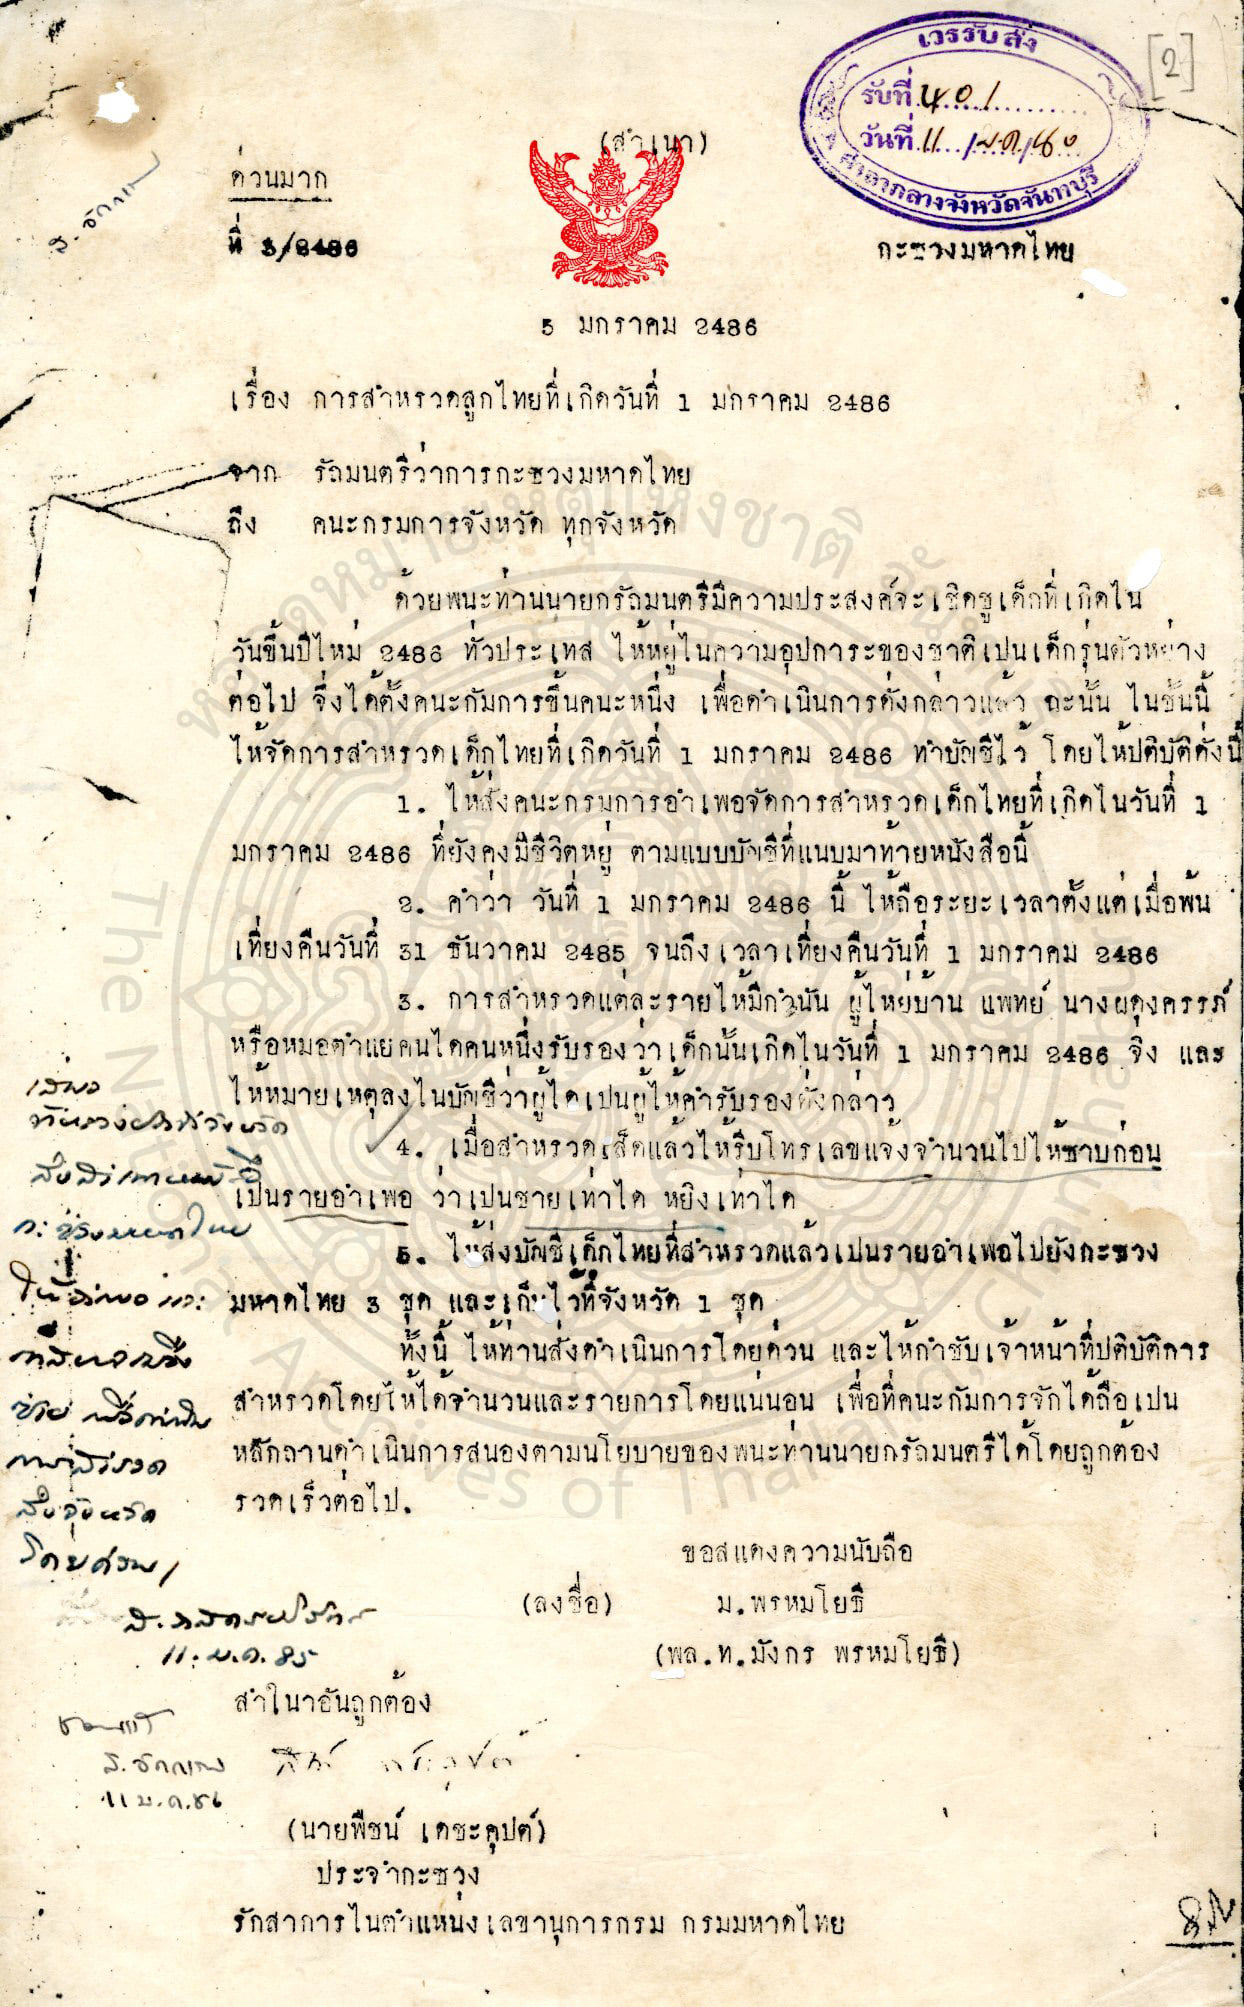 เวรรับส่ง
[2]
รับที่ 401
วันที่ 11 / ม.ค /
ศาลากลางจังหวัดจันทบุรี
(สำเนา)
ด่วนมาก
ที่ 3/2486
กะซวงมหาดไทย
5 มกราคม 2486
เรื่อง การสำหรวดลูกไทยที่เกิดวันที่ 1 มกราคม 2486
จาก รัถมนตรีว่าการกะซวงมหาดไทย
ถึง คนะกรมการจังหวัด ทุกจังหวัด
ด้วยพนะท่านนายกรัถมนตรีมีความประสงค์จะเชิดชูเด็กที่เกิดใน
วันขึ้นปีไหม่ 2486 ทั่วประเทส ไห้หยู่ไนความอุปการะของชาติเปนเด็กรุ่นตัวหย่าง
ต่อไป จึงได้ตั้งคนะกัมการขึ้นคนะหนึ่ง เพื่อดำเนินการดั่งกล่าวแล้ว ฉะนั้น ไนชั้นนี้
ไห้จัดการสำหรวดเด็กไทยที่เกิดวันที่ 1 มกราคม 2486 ทำบัญชีไว้ โดยไห้ปติบัติดั่งนี้
1. ไห้สั่งคนะกรมการอำเพอจัดการสำหรวดเด็กไทยที่เกิดไนวันที่ 1
มกราคม 2486 ที่ยังคงมีชีวิตหยู่ ตามแบบบัญชีที่แนบมาท้ายหนังสือนี้
2. คำว่า วันที่ 1 มกราคม 2486 นี้ ไห้ถือระยะเวลาตั้งแต่เมื่อพ้น
เที่ยงคืนวันที่ 31 ธันวาคม 2485 จนถึงเวลาเที่ยงคืนวันที่ 1 มกราคม 2486
3. การสำหรวดแต่ละรายไห้มีกำนัน ผู้ไหย่บ้าน แพทย์ นางผดุงครรภ์
หรือหมอตำแยคนไดคนหนึ่งรับรองว่าเด็กนั้นเกิดไนวันที่ 1 มกราคม 2486 จิง และ
ไห้หมายเหตุลงไนบัญชีว่าผู้ไดเปนผู้ไห้คำรับรองดั่งกล่าว
4. เมื่อสำหรวดเส็ดแล้วไห้รีบโทรเลขแจ้งจำนวนไปไห้ซาบก่อน
เปนรายอำเพอ ว่าเปนชายเท่าได หยิงเท่าได
5. ไห้ส่งบัญชีเด็กไทยที่สำหรวดแล้วเปนรายอำเพอไปยังกะซวง
มหาดไทย 3 ชุด และเก็บไว้ที่จังหวัด 1 ชุด
ทั้งนี้ ไห้ท่านสั่งดำเนินการโดยด่วน และไห้กำชับเจ้าหน้าที่ปติบัติการ
สำหรวดโดยไห้ได้จำนวนและรายการโดยแน่นอน เพื่อที่คนะกัมการจักได้ถือเปน
หลักถานดำเนินการสนองตามนโยบายของพนะท่านนายกรัถมนตรีได้โดยถูกต้อง
รวดเร็วต่อไป.
ขอสแดงความนับถือ
(ลงชื่อ) ม.พรหมโยธี
(พล.ท.มังกร พรหมโยธี)
11. ม.ค. 85
สำไนาอันถูกต้อง
11 ม.ค.86
(นายพืชน์ เดชะคุปต์)
ประจำกะซวง
รักสาการไนตำแหน่งเลขานุการกรม กรมมหาดไทย
หอจดหมายเหตุแห่งชาติ จันทบุรี
The National Archives of Thailand, Chanthaburi